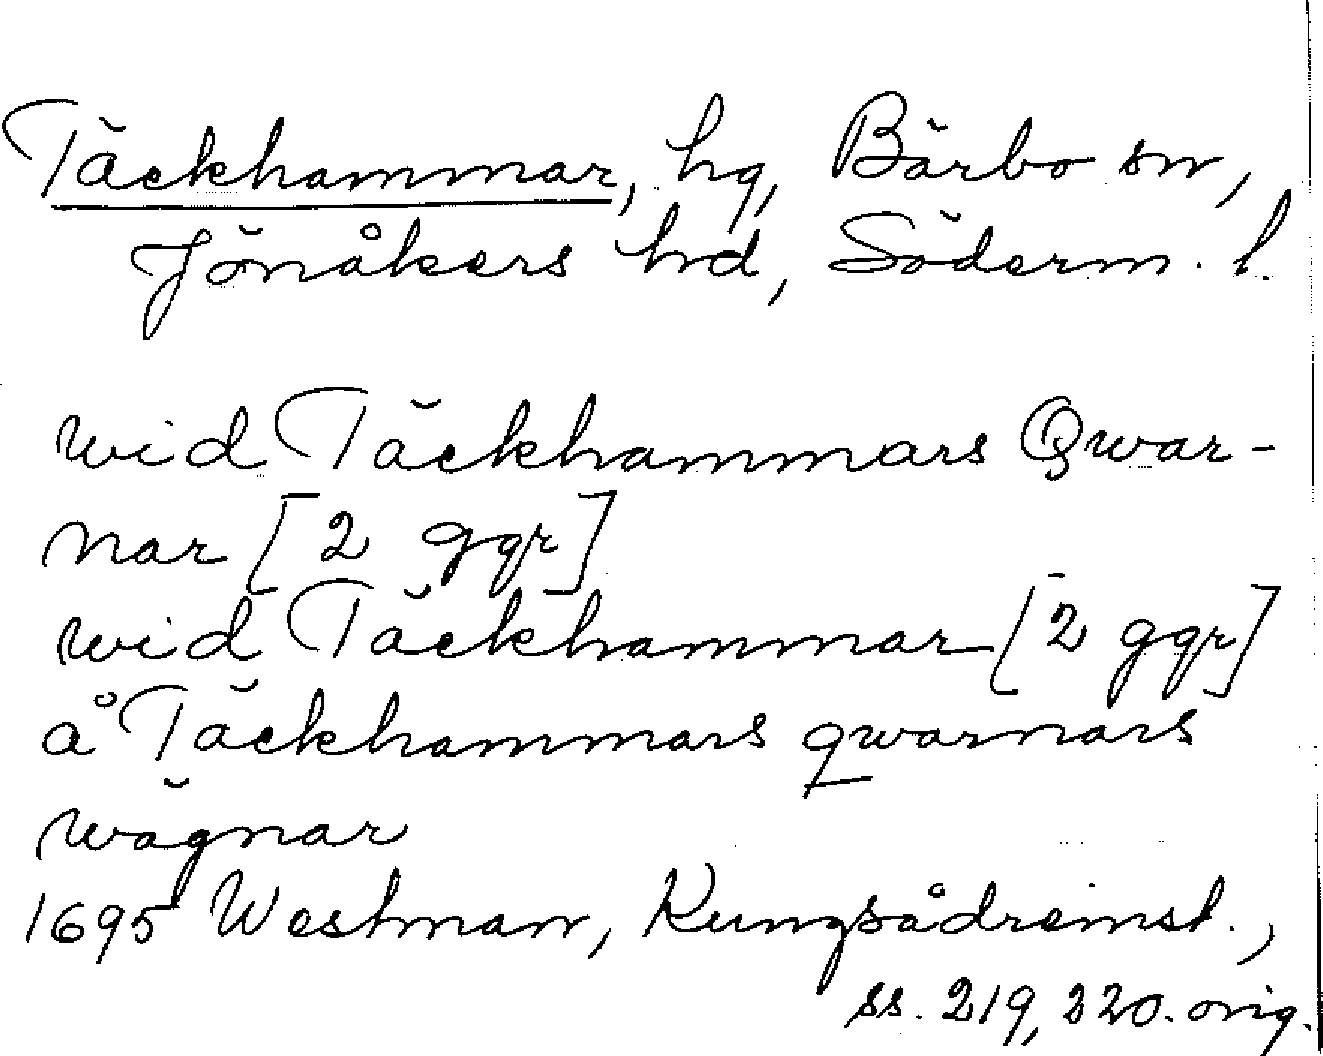 Täckhammar, hg, Bärbo sn,
Jönåkers hd, Söderm. l.
wid Täckhammars Qwar-
nar [2 ggr]
wid Täckhammar [2 ggr]
å Täckhammars qwarnars
wägnar
1695 Westman, Kungsådreinst.,
ss. 219, 220. orig.